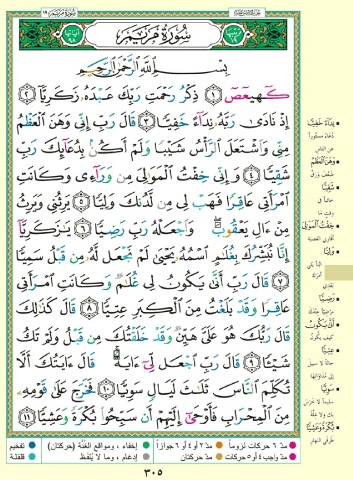 سُورَةُ مَرْيَمَ
بِسْمِ ٱللَّهِ ٱلرَّحْمَٰنِ ٱلرَّحِيمِ
كٓهيعٓصٓ ١ ذِكْرُ رَحْمَتِ رَبِّكَ عَبْدَهُۥ زَكَرِيَّآ ٢
إِذْ نَادَىٰ رَبَّهُۥ نِدَآءً خَفِيًّا ٣ قَالَ رَبِّ إِنِّى وَهَنَ ٱلْعَظْمُ
مِنِّى وَٱشْتَعَلَ ٱلرَّأْسُ شَيْبًا وَلَمْ أَكُنۢ بِدُعَآئِكَ رَبِّ
شَقِيًّا ٤ وَإِنِّى خِفْتُ ٱلْمَوَٰلِىَ مِن وَرَآءِى وَكَانَتِ
ٱمْرَأَتِى عَاقِرًا فَهَبْ لِى مِن لَّدُنكَ وَلِيًّا ٥ يَرِثُنِى وَيَرِثُ
مِنْ ءَالِ يَعْقُوبَ ۖ وَٱجْعَلْهُ رَبِّ رَضِيًّا ٦ يَٰزَكَرِيَّآ
إِنَّا نُبَشِّرُكَ بِغُلَٰمٍ ٱسْمُهُۥ يَحْيَىٰ لَمْ نَجْعَل لَّهُۥ مِن قَبْلُ سَمِيًّا
٧ قَالَ رَبِّ أَنَّىٰ يَكُونُ لِى غُلَٰمٌ وَكَانَتِ ٱمْرَأَتِى
عَاقِرًا وَقَدْ بَلَغْتُ مِنَ ٱلْكِبَرِ عِتِيًّا ٨ قَالَ كَذَٰلِكَ
قَالَ رَبُّكَ هُوَ عَلَىَّ هَيِّنٌ وَقَدْ خَلَقْتُكَ مِن قَبْلُ وَلَمْ تَكُ
شَيْـًٔا ٩ قَالَ رَبِّ ٱجْعَل لِّىٓ ءَايَةً ۚ قَالَ ءَايَتُكَ أَلَّا
تُكَلِّمَ ٱلنَّاسَ ثَلَٰثَ لَيَالٍ سَوِيًّا ١٠ فَخَرَجَ عَلَىٰ قَوْمِهِۦ
مِنَ ٱلْمِحْرَابِ فَأَوْحَىٰٓ إِلَيْهِمْ أَن سَبِّحُوا۟ بُكْرَةً وَعَشِيًّا ١١
نِدَآءً خَفِيًّا
وَهَنَ الْعَظْمُ
شَقِيًّا
خِفْتُ الْمَوَالِيَ
وَلِيًّا
رَضِيًّا
أَنَّىٰ يَكُونُ
عِتِيًّا
سَوِيًّا
بُكْرَةً وَعَشِيًّا
مدّ ٦ حركات لزوماً مدّ ٢ أو ٤ أو ٦ جوازاً إخفاء، ومواقع الغنّة (حركتان) تفخيم
مدّ واجب ٤ أو ٥ حركات مدّ حركتان إدغام، وما لا يُلفظ قلقلة
٣٠٥